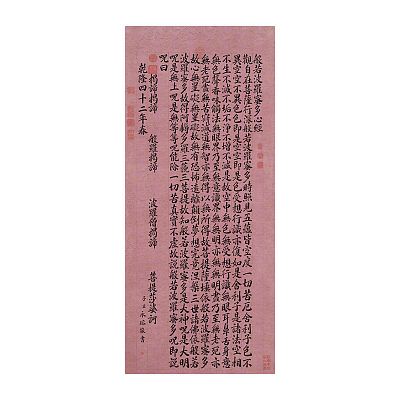 般若波羅蜜多心經
觀自在菩薩行深般若波羅蜜多時照見五蘊皆空度一切苦厄舍利子色不
異空空不異色色即是空空即是色受想行識亦復如是舍利子是諸法空相
不生不滅不垢不淨不增不減是故空中無色無受想行識無眼耳鼻舌身意
無色聲香味觸法無眼界乃至無意識界無無明亦無無明盡乃至無老死亦
無老死盡無苦集滅道無智亦無得以無所得故菩提薩埵依般若波羅蜜多
故心無罣礙無罣礙故無有恐怖遠離顛倒夢想究竟涅槃三世諸佛依般若
波羅蜜多故得阿耨多羅三藐三菩提故知般若波羅蜜多是大神呪是大明
呪是無上呪是無等等呪能除一切苦真實不虛故說般若波羅蜜多呪即說
呪曰
揭諦揭諦 般羅揭諦 波羅僧揭諦 菩提莎婆訶
乾隆四十二年春 子臣永瑢敬書